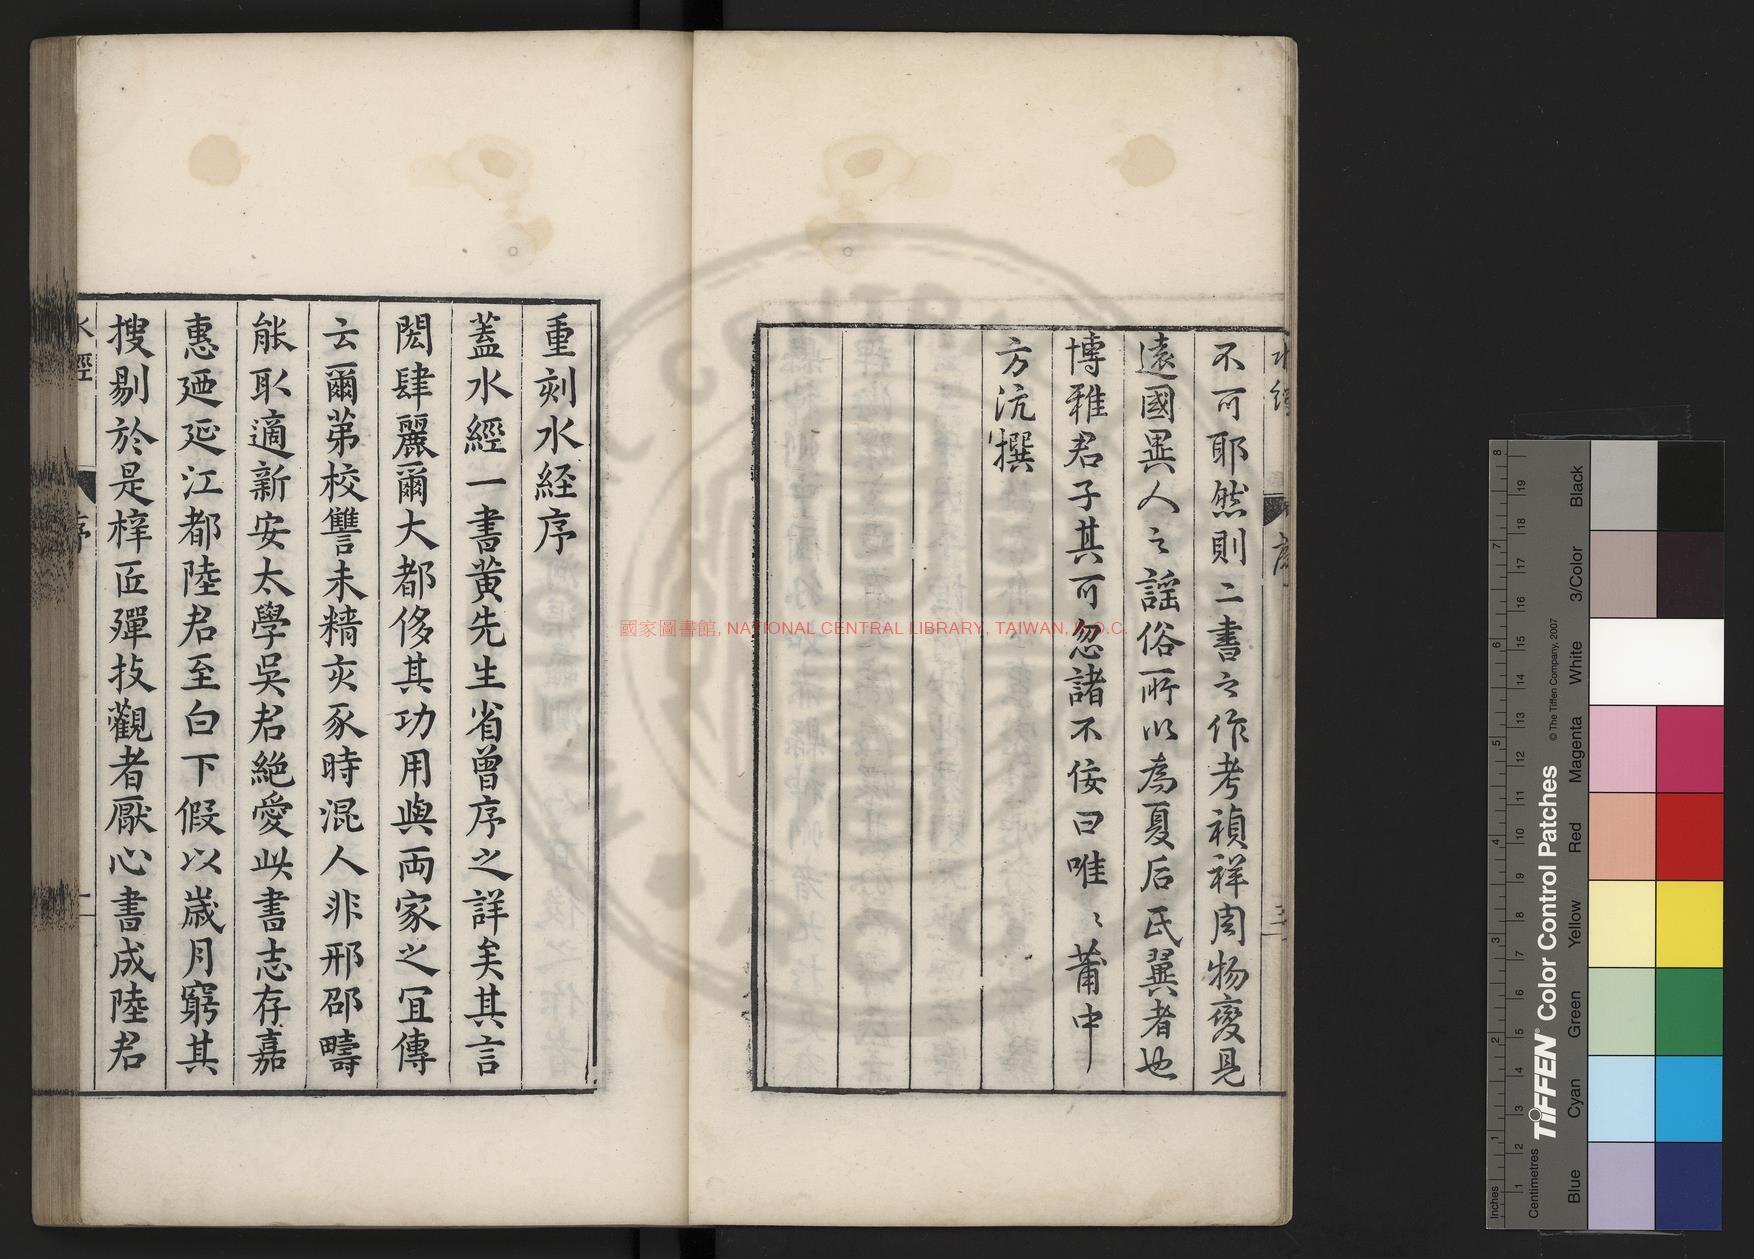 不可耶然則二書之作考禎祥図物變見
遠國異人之謡俗所以為夏后氏翼者也
博雅君子其可忽諸不佞曰唯〻莆中
方沆撰
重刻水経序
蓋水經一書黄先生省曾序之詳矣其言
閎肆麗爾大都侈其功用與両家之冝傳
云爾苐校讐未精亥豕時混人非邢邵疇
能取適新安太學吳君絶愛此書志存嘉
惠廼延江都陸君至白下假以歳月窮其
搜剔於是梓匠殫技觀者厭心書成陸君
水經
序
二
序
三
國家圖書館, NATIONAL CENTRAL LIBRARY, TAIWAN, R.O.C.
Inches
Centimetres
TIFFEN® Color Control Patches
© The Tiffen Company, 2007
Blue
Cyan
Green
Yellow
Red
Magenta
White
3/Color
Black